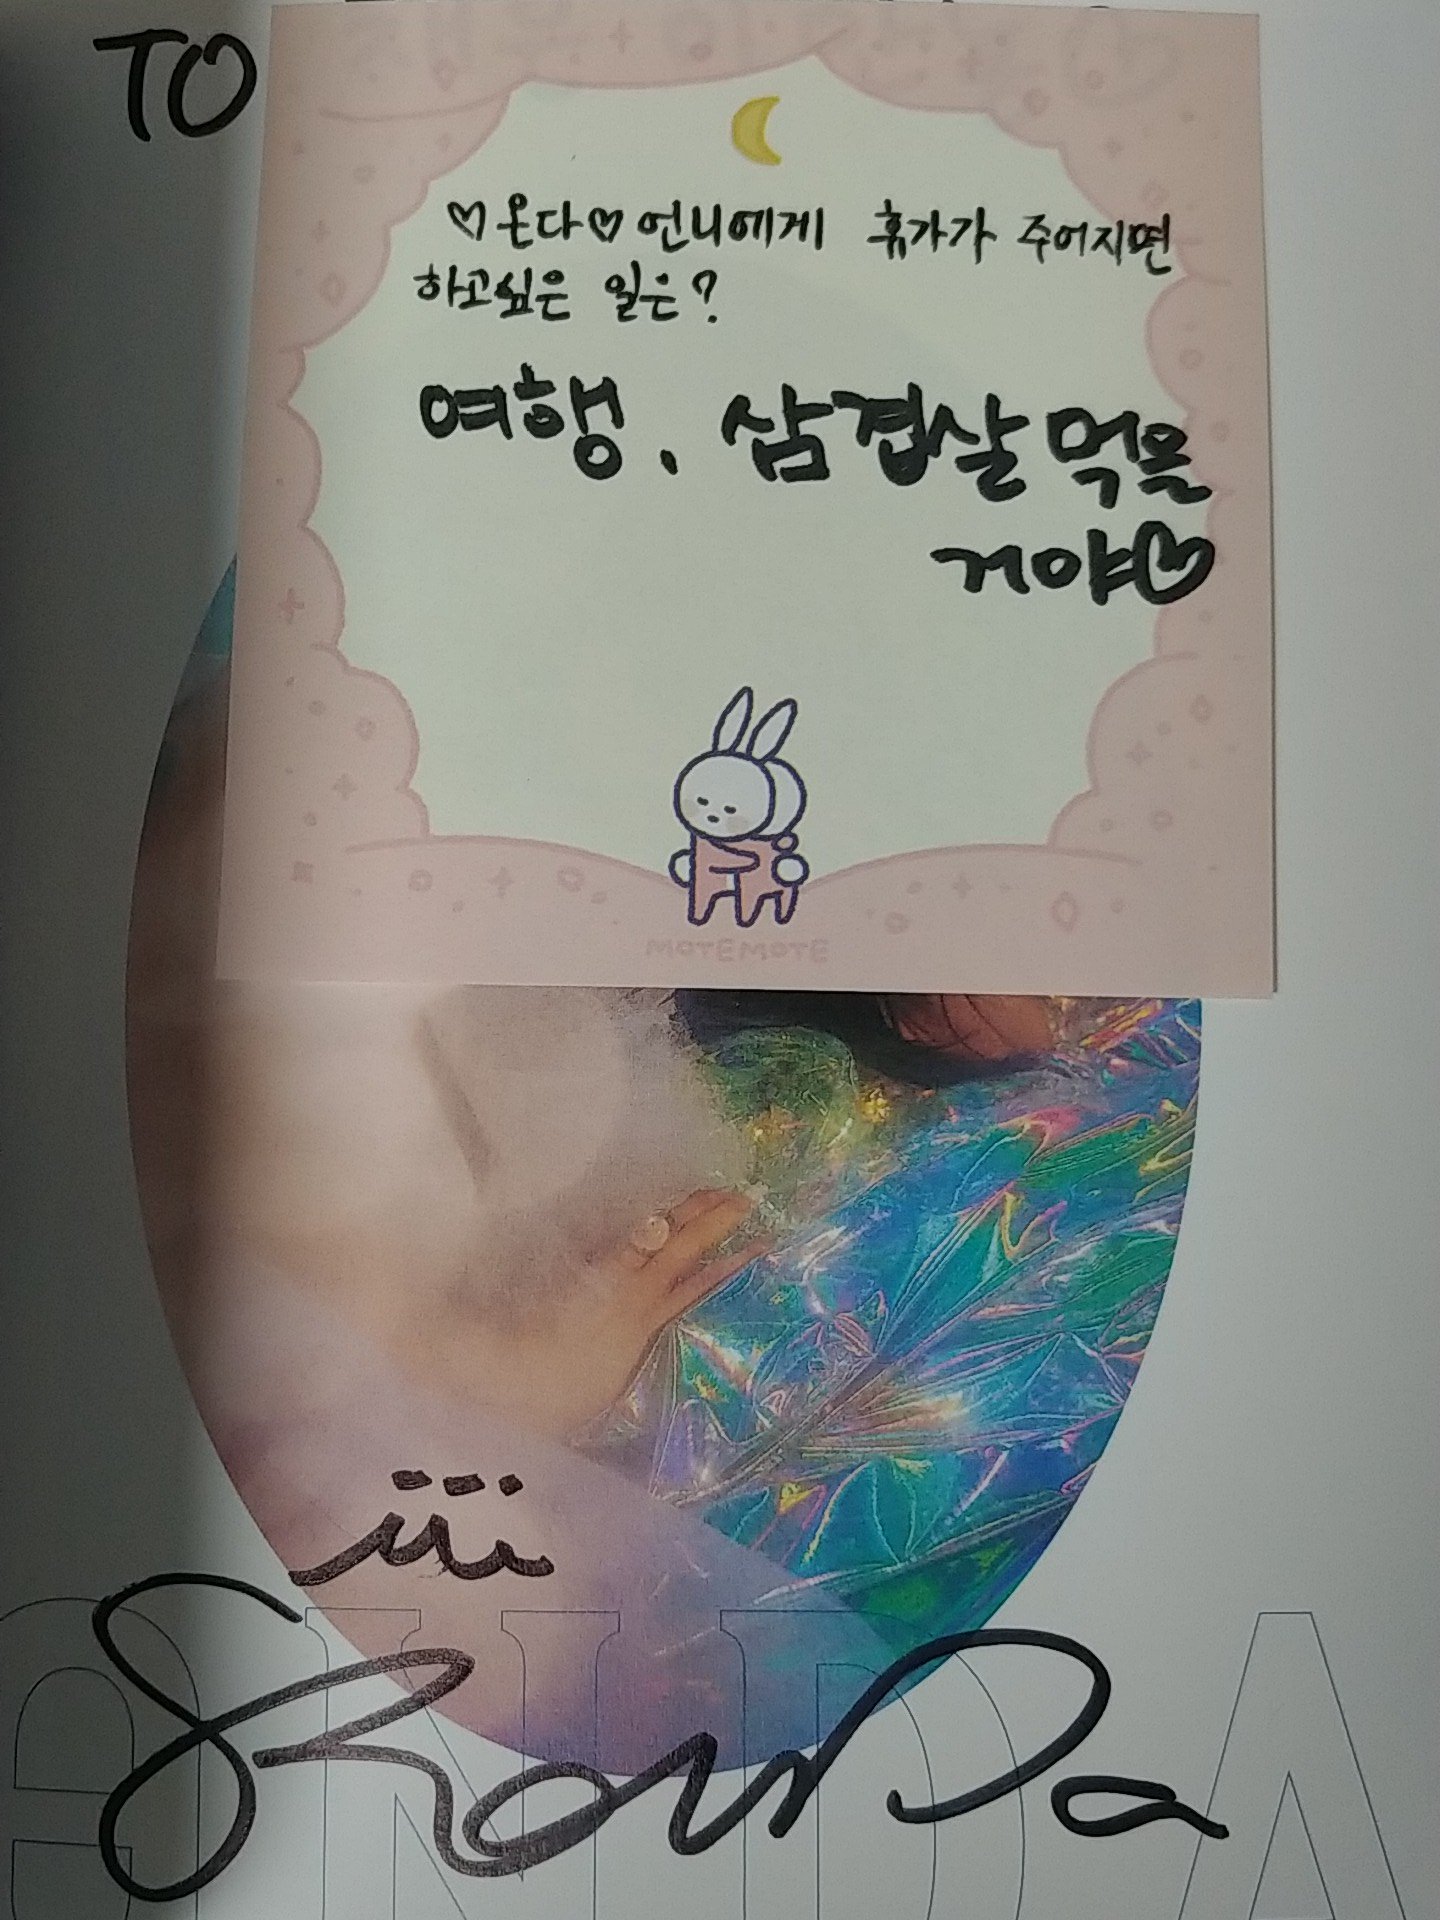 TO
♡온다♡ 언니에게 휴가가 주어지면
하고싶은 일은?
여행. 삼겹살 먹을
거야♡
MOTEMOTE